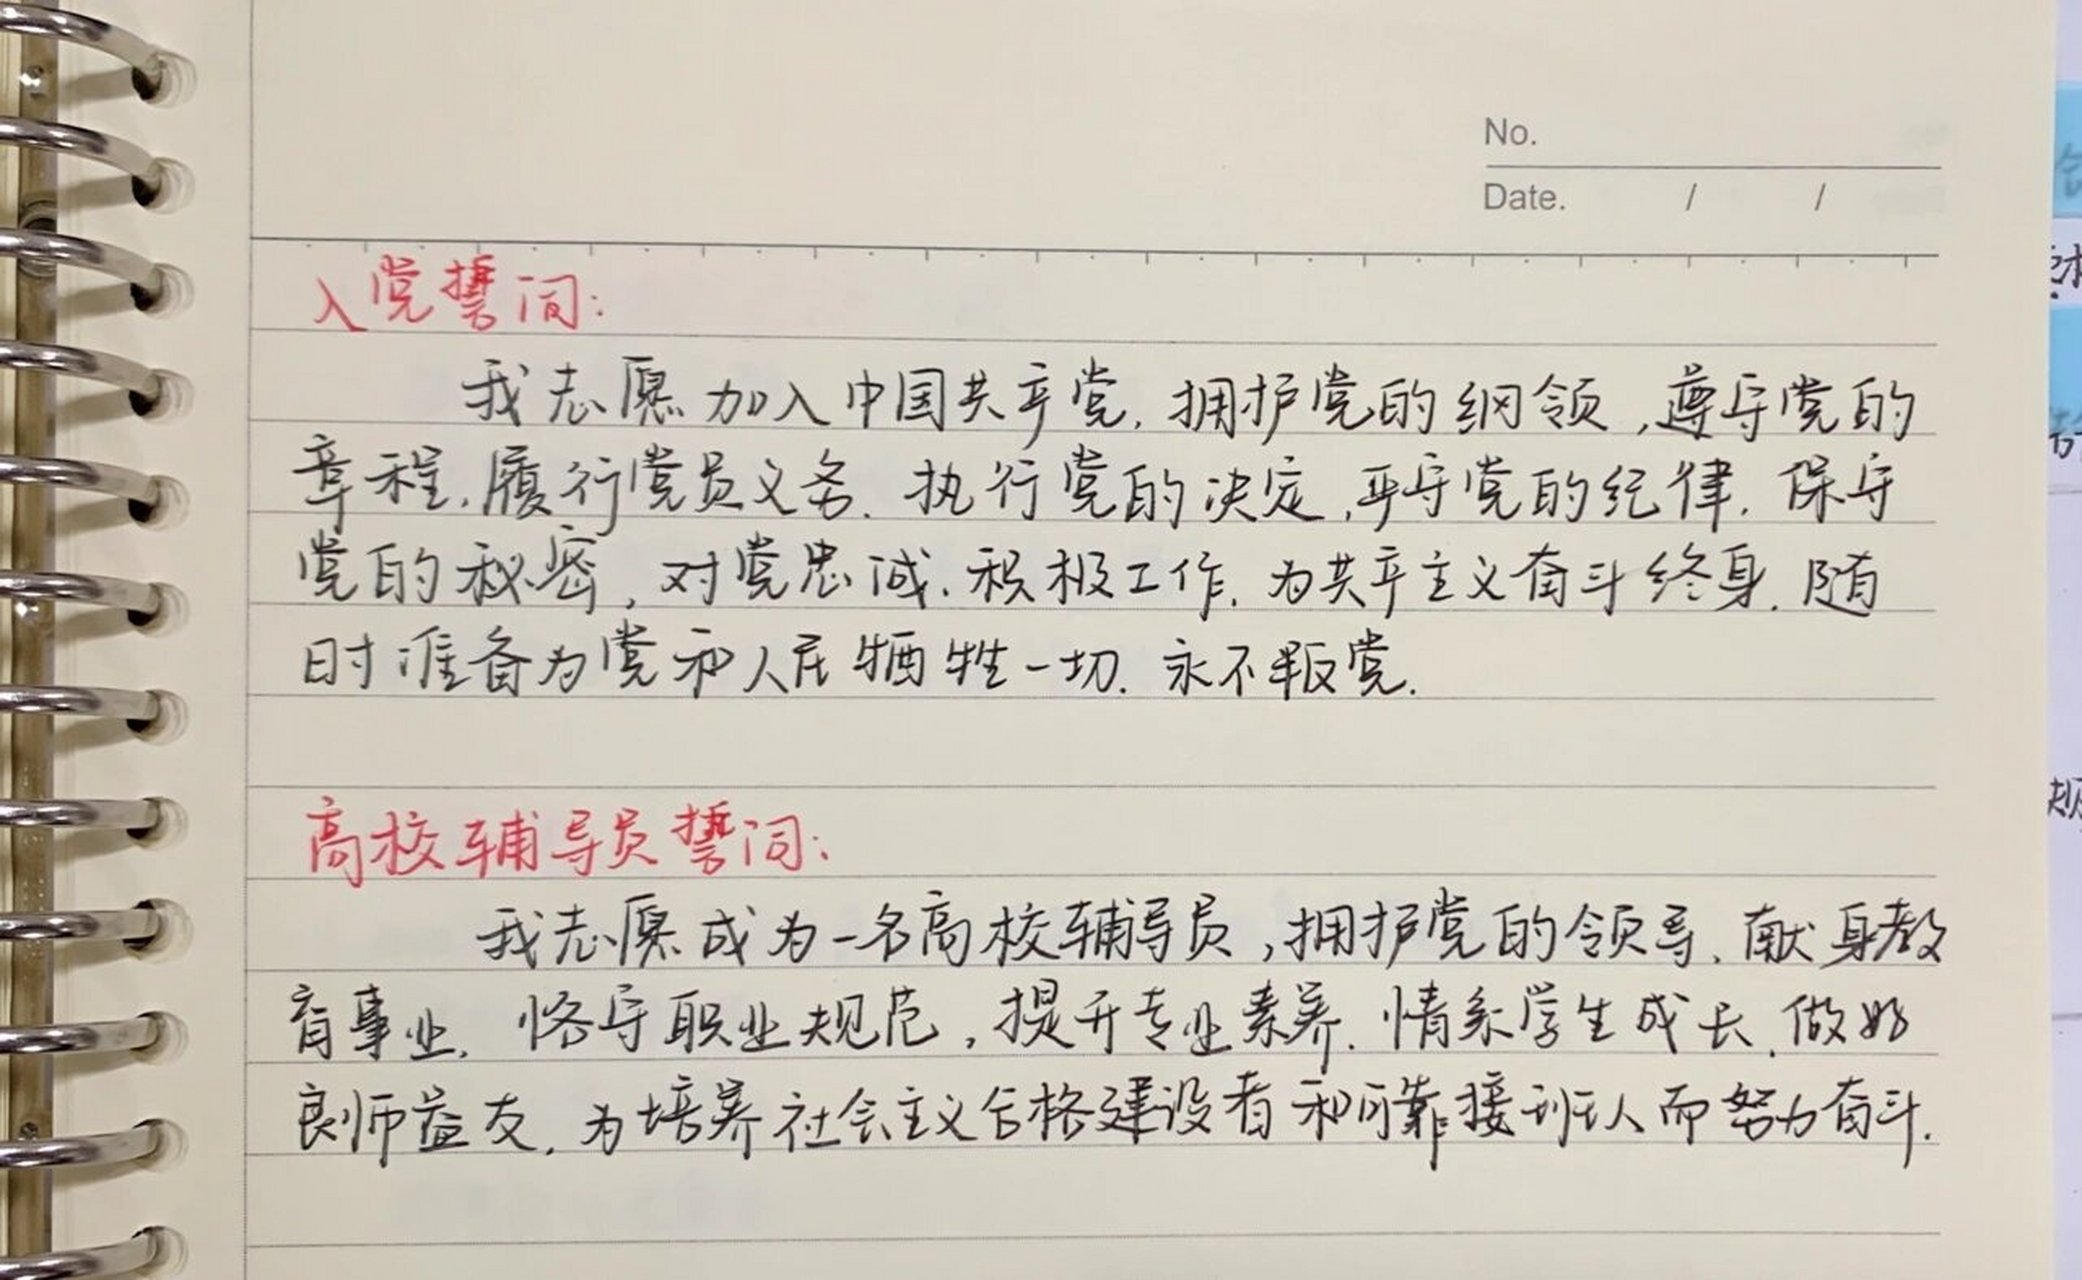 No.
Date. / /
入党誓词:
我志愿加入中国共产党,拥护党的纲领,遵守党的
章程,履行党员义务,执行党的决定,严守党的纪律,保守
党的秘密,对党忠诚,积极工作,为共产主义奋斗终身,随
时准备为党和人民牺牲一切,永不叛党.
高校辅导员誓词:
我志愿成为一名高校辅导员,拥护党的领导,献身教
育事业,恪守职业规范,提升专业素养,情系学生成长,做好
良师益友,为培养社会主义合格建设者和可靠接班人而努力奋斗.